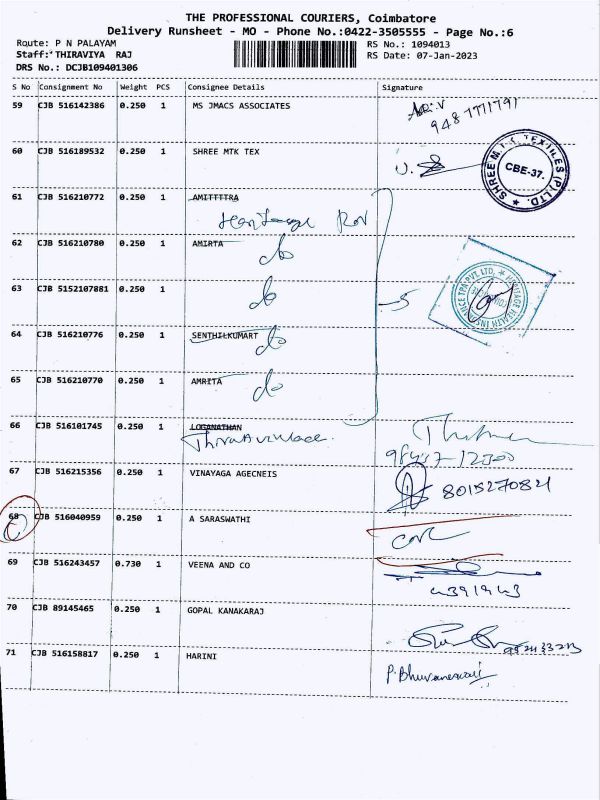 THE PROFESSIONAL COURIERS, Coimbatore
Delivery Runsheet - MO - Phone No.:0422-3505555 - Page No.:6
Route: P N PALAYAM
RS No.: 1094013
Staff: THIRAVIYA RAJ
RS Date: 07-Jan-2023
DRS No.: DCJB109401306
S No Consignment No Weight PCS Consignee Details Signature
59 CJB 516142386 0.250 1 MS JMACS ASSOCIATES
9487771791
60 CJB 516189532 0.250 1 SHREE MTK TEX
SHREE M.T.K. TEXTILES (P) LTD.
CBE-37.
61 CJB 516210772 0.250 1 AMITTTTRA
62 CJB 516210780 0.250 1 AMIRTA
do
63 CJB 5152107881 0.250 1
do
5
HERITAGE HEALTH INSURANCE TPA PVT. LTD.
64 CJB 516210776 0.250 1 SENTHILKUMART
do
65 CJB 516210770 0.250 1 AMRITA
do
66 CJB 516101745 0.250 1 LOGANATHAN
67 CJB 516215356 0.250 1 VINAYAGA AGECNEIS
8015270821
68 CJB 516040959 0.250 1 A SARASWATHI
69 CJB 516243457 0.730 1 VEENA AND CO
70 CJB 89145465 0.250 1 GOPAL KANAKARAJ
71 CJB 516158817 0.250 1 HARINI
P. Bhuvaneswari